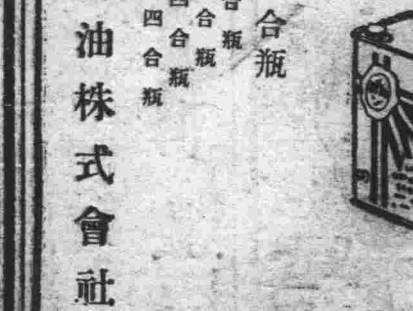 合瓶
合瓶
合瓶
四合瓶
四合瓶
油株式會社